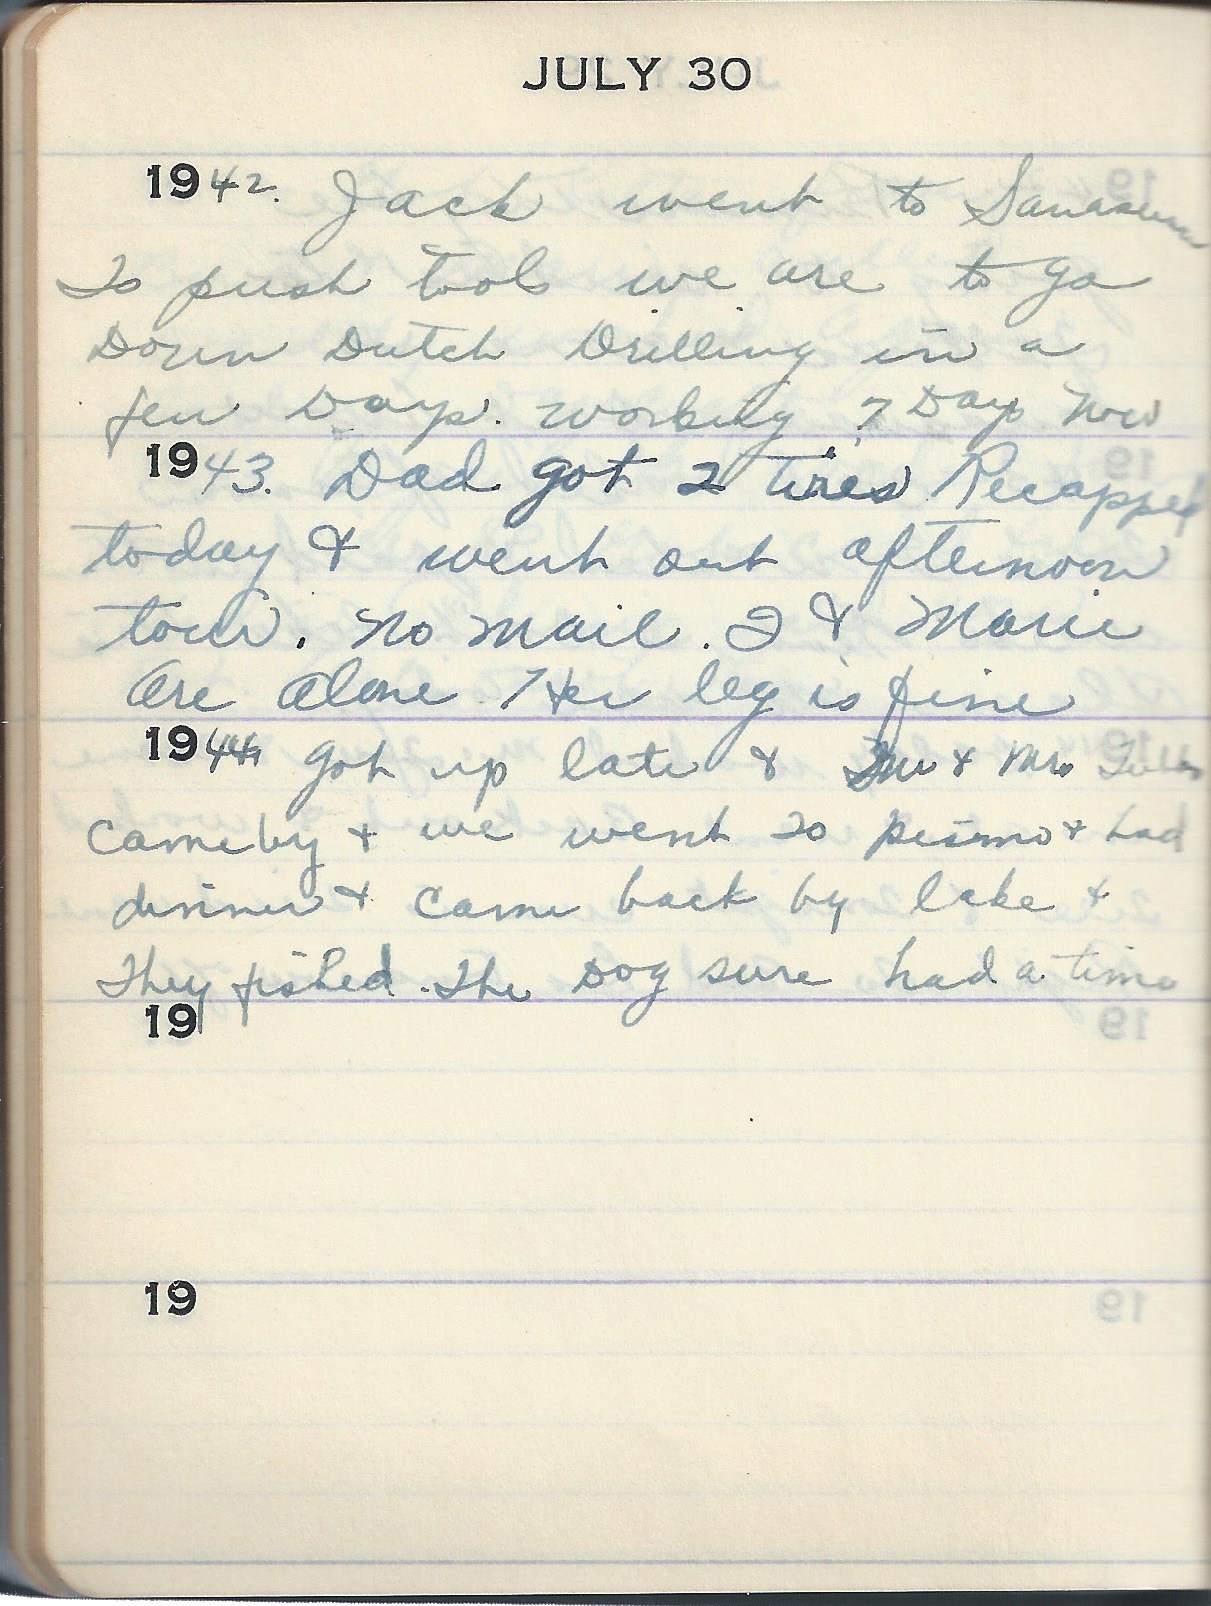 JULY 30
1942. Jack went to
To push tools we are to go
Down Dutch Drilling in a
few Days. working 7 Days Now
1943. Dad got 2 tires Recapped
today & went out afternoon
tour. No mail. I & Marie
are alone Her leg is fine
1944 got up late & Mr & Mrs
came by & we went to pismo & had
dinner & came back by lake &
They fished. The Dog sure had a time
19
19